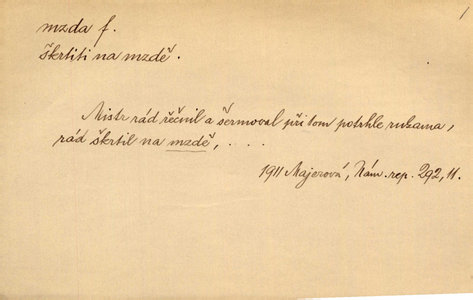 mzda f.
škrtiti na mzdě.
Mistr rád řečnil a šermoval při tom potrhle rukama,
rád škrtil na mzdě, . . . .
1911 Majerová, Nám. rep. 292, 11.